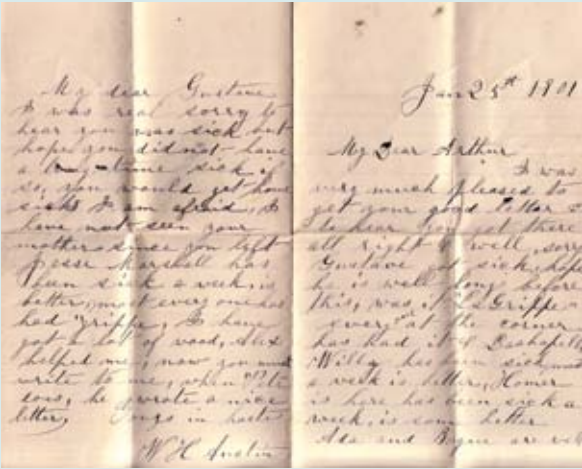 My dear Gustave
I was real sorry to
hear you was sick but
hope you did not have
a long time sick if
so, you would get home
sick I am afraid, I
have not seen your
mother since you left
Jesse Marshall has
been sick a week, is
better, most every one has
had "grippe, I have
got a lot of wood, Alex
helped me, now you must
write to me, when
sous, he wrote a nice
letter, Yours in haste
W H Austin
Jan 25th
My Dear Arthur
I was
very much pleased to
get your good letter &
to hear you got there
all right & well, sorry
Gustave got sick, hope
he is well long before
this, was it La Grippe
every at the corner
has had it &
Willy has been sick, most
a week is better, Homer
is here has been sick a
week, is some better
Ada and are well